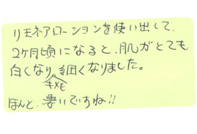 リモネアローションを使い出して、
2ヶ月頃になると、肌がとても
白くなり、キメも細くなりました。
ほんと、凄いですね!!